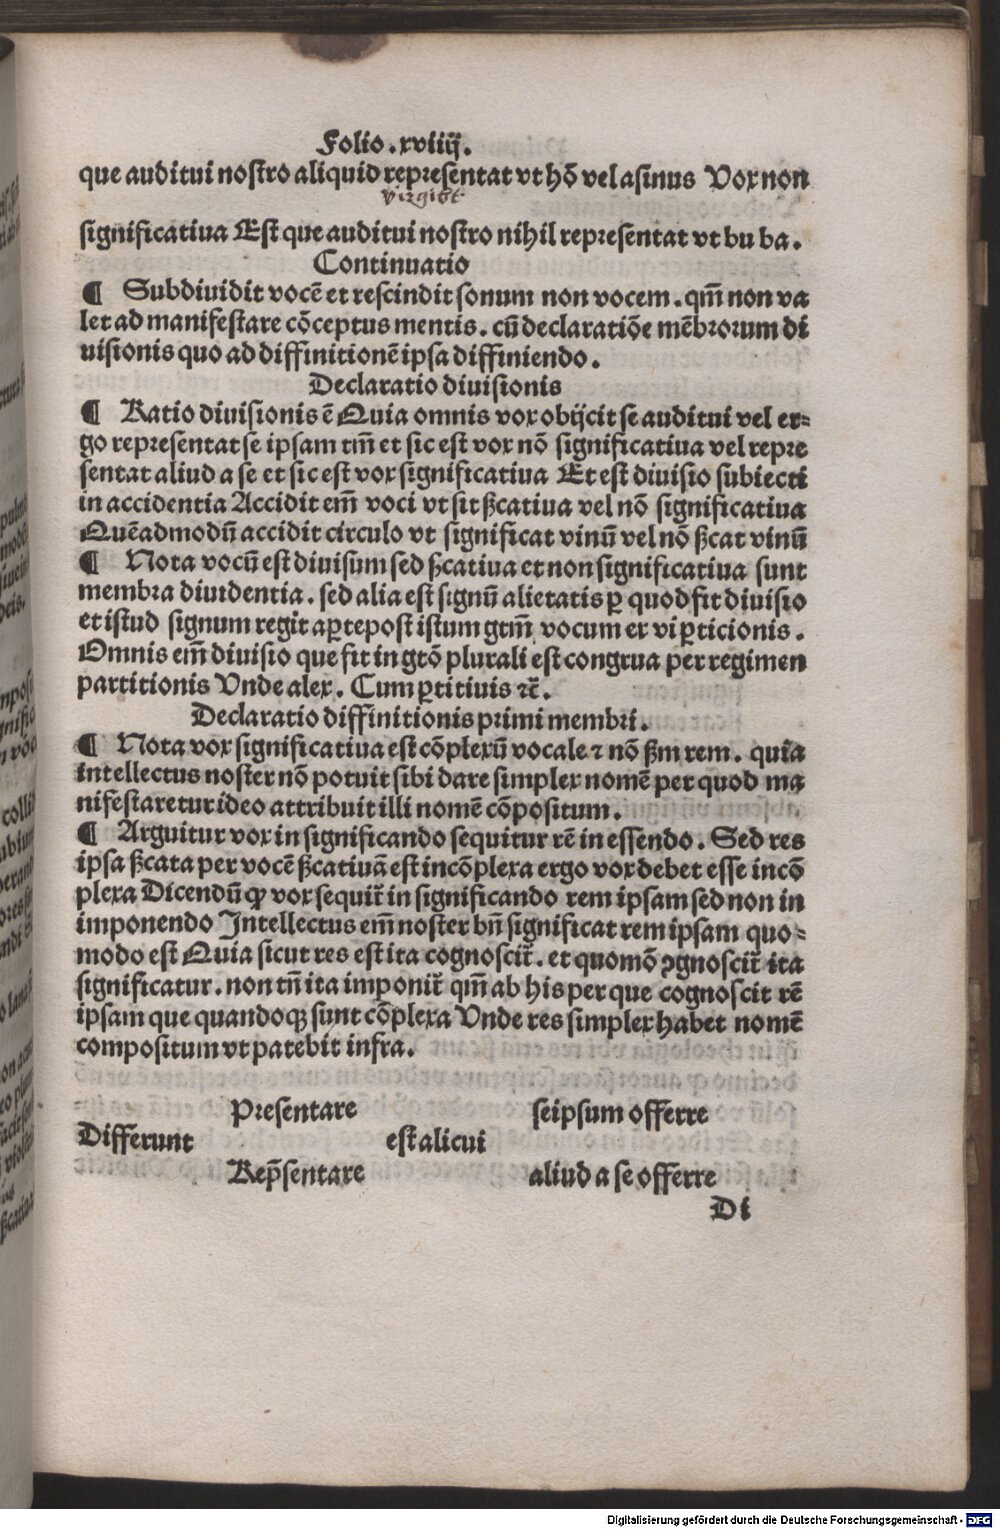 Folio .xviiij.
que auditui nostro aliquid representat vt hō vel asinus Vox non
significatiua Est que auditui nostro nihil representat vt bu ba.
Continuatio
¶ Subdiuidit vocē et rescindit sonum non vocem. qm̄ non va
let ad manifestare cōceptus mentis. cū declaratiōe mēbrorum di
uisionis quo ad diffinitionē ipsa diffiniendo.
Declaratio diuisionis
¶ Ratio diuisionis ē Quia omnis vox obijcit se auditui vel er=
go representat se ipsam tm̄ et sic est vox nō significatiua vel repre
sentat aliud a se et sic est vox significatiua Et est diuisio subiecti
in accidentia Accidit em̄ voci vt sit ßcatiua vel nō significatiua
Quēadmodū accidit circulo vt significat vinū vel nō ßcat vinū
¶ Nota vocū est diuisum sed ßcatiua et non significatiua sunt
membra diuidentia. sed alia est signū alietatis ꝑ quod fit diuisio
et istud signum regit a ꝑte post istum gtm̄ vocum ex vi ꝑticionis.
Omnis em̄ diuisio que fit in gtō plurali est congrua per regimen
partitionis Vnde alex. Cum ꝑtitiuis ⁊c̄.
Declaratio diffinitionis primi membri.
¶ Nota vox significatiua est cōplexū vocale ⁊ nō ßm rem. quia
intellectus noster nō potuit sibi dare simplex nomē per quod ma
nifestaretur ideo attribuit illi nomē cōpositum.
¶ Arguitur vox in significando sequitur rē in essendo. Sed res
ipsa ßcata per vocē ßcatiuā est incōplexa ergo vox debet esse incō
plexa Dicendū ꝙ vox sequit̄ in significando rem ipsam sed non in
imponendo Intellectus em̄ noster bn̄ significat rem ipsam quo=
modo est Quia sicut res est ita cognoscit̄. et quomō ꝯgnoscit̄ ita
significatur. non tn̄ ita imponit̄ qm̄ ab his per que cognoscit rē
ipsam que quandoqꝫ sunt cōplexa Vnde res simplex habet nomē
compositum vt patebit infra.
Presentare seipsum offerre
Differunt est alicui
Rep̄sentare aliud a se offerre
Di
Digitalisierung gefördert durch die Deutsche Forschungsgemeinschaft - DFG